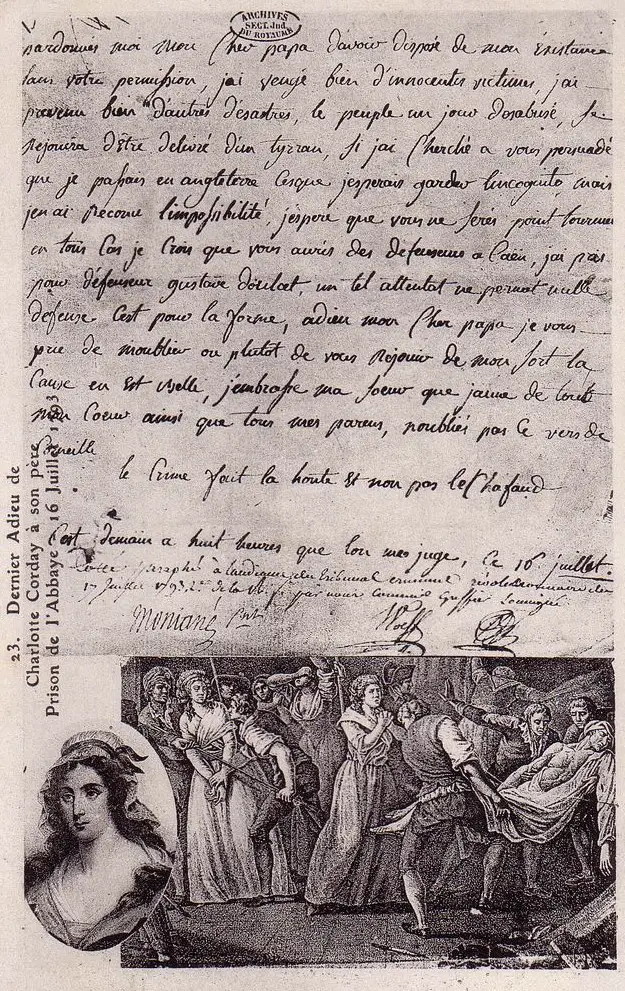 ARCHIVES
SECT. Jud.
DU ROYAUME
pardonnés moi mon Cher papa d'avoir disposé de mon Existance
sans votre permission, j'ai vengé bien d'innocentes victimes, j'ai
prevenu bien d'autres désastres, le peuple un jour désabusé, se
rejouira d'être délivré d'un tyrran, Si j'ai Cherché a vous persuadé
que je passais en angleterre Cesque jesperais garder lincognito mais
jen ai reconnu l'impossibilité, jéspere que vous ne serés point tourmenté
en tous Cas je Crois que vous aurés des défenseurs a Caen, jai pris
pour défenseur gustave doulcet, un tel attentat ne permet nulle
défense. C'est pour la forme, adieu mon Cher papa je vous
prie de moublier ou plutot de vous rejouir de mon sort la
Cause en est belle, j'embrasse ma soeur que jaime de tout
mon Coeur ainsi que tous mes parens, noubliés pas Ce vers de
Corneille
le Crime fait la honte et non pas lechafaud
C'est demain a huit heures que lon me juge, Ce 16 juillet.
du tribunal criminel révolutionnaire
17 juillet 1793 par nous Commis Greffier
Montané
Wolff
23. Dernier Adieu de
Charlotte Corday à son père
Prison de l'Abbaye 16 Juillet 1793